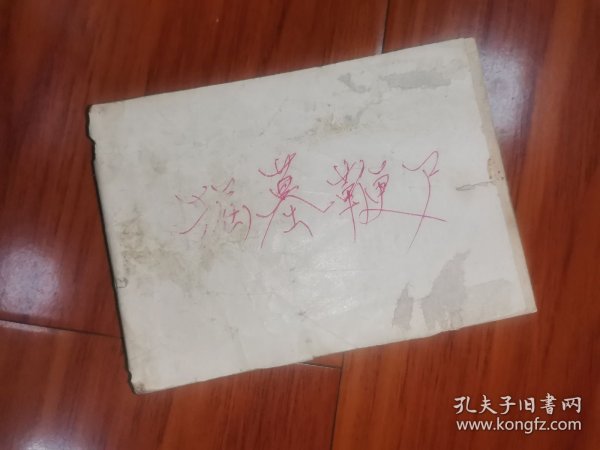 墓鞭下
孔夫子旧書网
www.kongfz.com